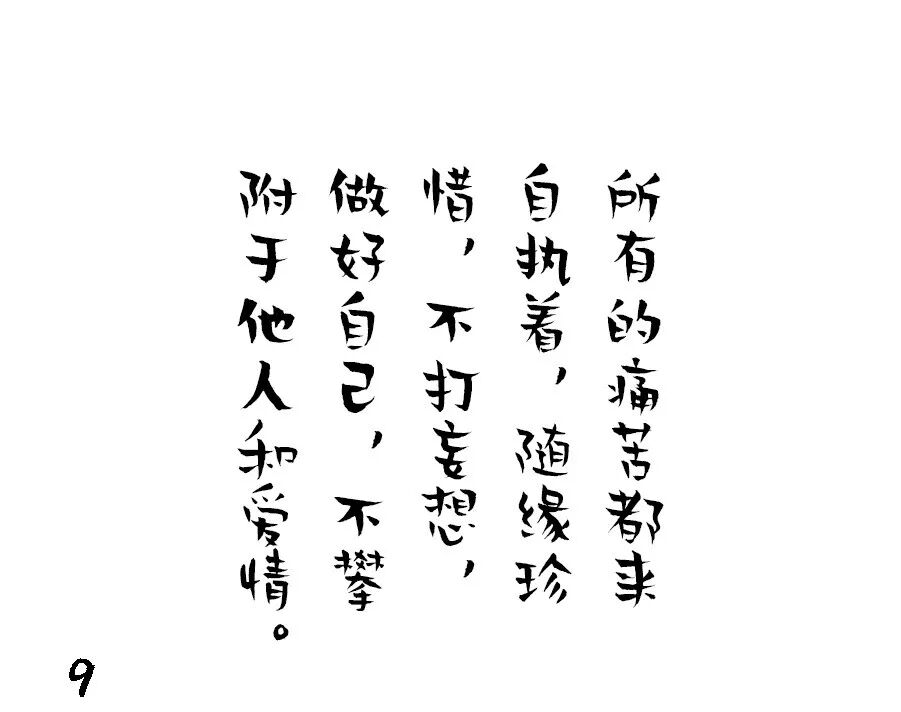 所有的痛苦都来
自执着，随缘珍
惜，不打妄想，
做好自己，不攀
附于他人和爱情。
9